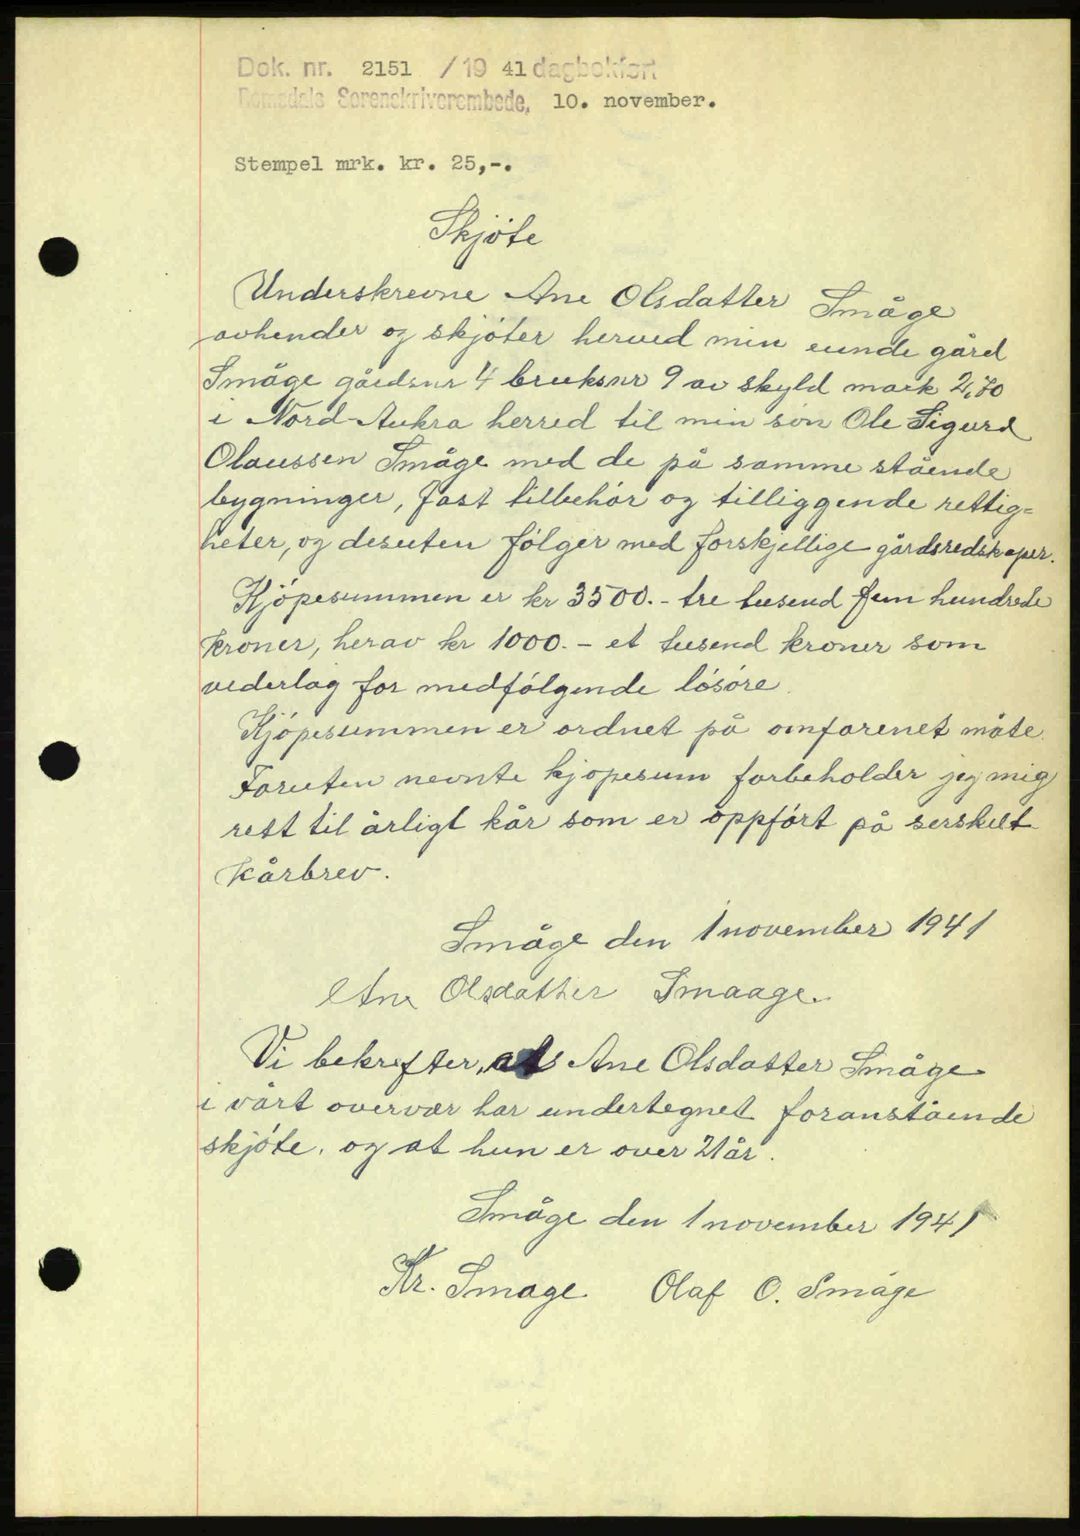 Dok. nr. 2151 /19 41 dagbokført
Romsdals Sorenskriverembede, 10. november.
Stempel mrk. kr. 25,-.
Skjöte
Underskrevne Ane Olsdatter Småge
avhender og skjöter herved min eiende gård
Småge gårdsnr 4 bruksnr 9 av skyld mark 2,70
i Nord-Aukra herred til min sön Ole Sigurd
Olaussen Småge med de på samme stående
bygninger, fast tilbehör og tilliggende rettig=
heter, og desuten fölger med forskjellige gårdsredskaper.
Kjöpesummen er kr 3500.- tre tusend fem hundrede
kroner, herav kr 1000.- et tusend kroner som
vederlag for medfölgende lösöre.
Kjöpesummen er ordnet på omforenet måte.
Foruten nevnte kjöpesum forbeholder jeg mig
rett til årligt kår som er oppfört på serskilt
kårbrev.
Småge den 1 november 1941
Ane Olsdatter Smaage.
Vi bekrefter, at Ane Olsdatter Småge
i vårt overvær har undertegnet foranstående
skjöte, og at hun er over 21 år.
Småge den 1 november 1941
Kr. Smage. Olaf O. Småge